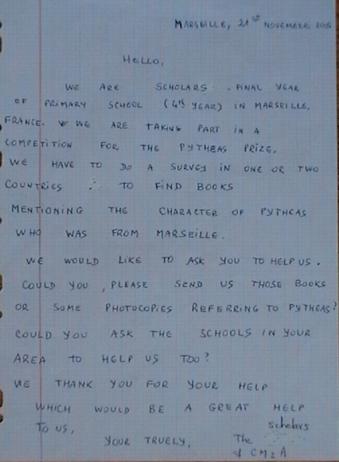 MARSEILLE, 21ST NOVEMBER
HELLO,
WE ARE SCHOLARS . FINAL YEAR
OF PRIMARY SCHOOL (4th YEAR) IN MARSEILLE,
FRANCE. WE ARE TAKING PART IN A
COMPETITION FOR THE PYTHEAS PRIZE.
WE HAVE TO DO A SURVEY IN ONE OR TWO
COUNTRIES TO FIND BOOKS
MENTIONING THE CHARACTER OF PYTHEAS
WHO WAS FROM MARSEILLE.
WE WOULD LIKE TO ASK YOU TO HELP US.
COULD YOU, PLEASE SEND US THOSE BOOKS
OR SOME PHOTOCOPIES REFERRING TO PYTHEAS?
COULD YOU ASK THE SCHOOLS IN YOUR
AREA TO HELP US TOO?
WE THANK YOU FOR YOUR HELP
WHICH WOULD BE A GREAT HELP
TO US,
YOUR TRUELY, The scholars
of CM2A